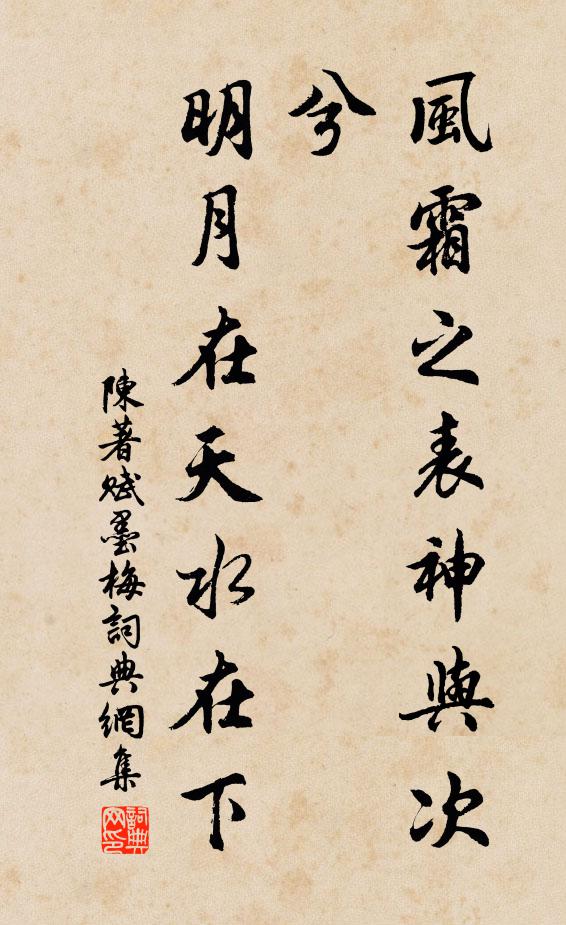 風霜之表神與次
兮
明月在天水在下
陳著賦墨梅詞典網集
詞典
网印